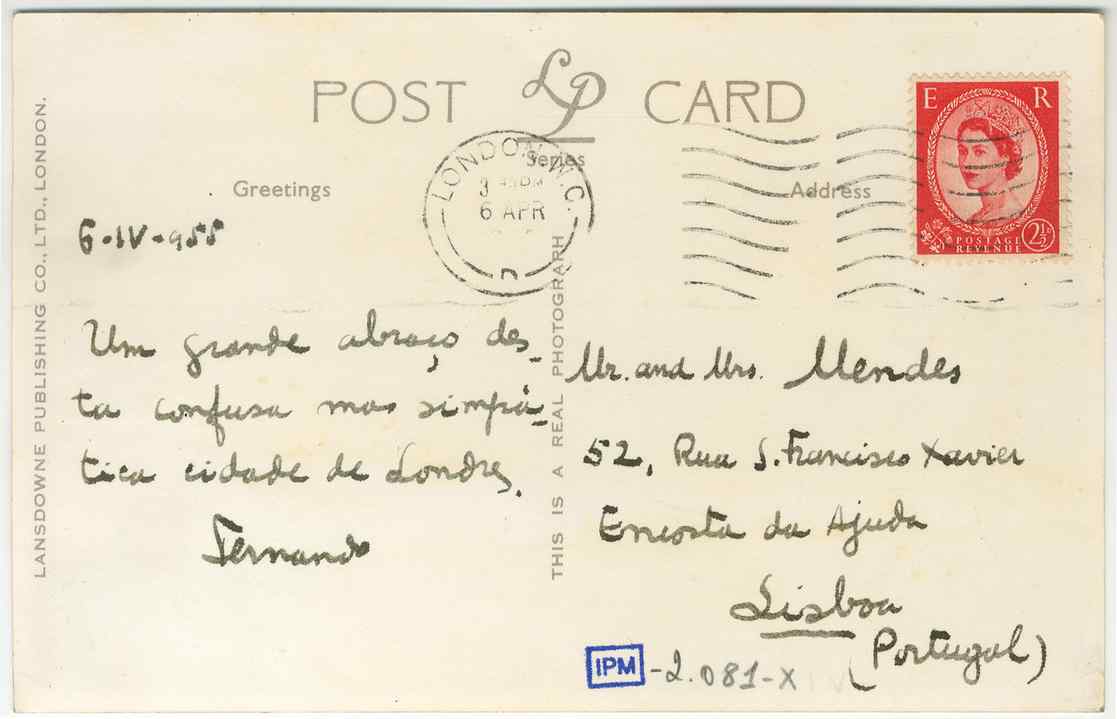 POST LP CARD
Series
Greetings
Address
LONDON. W.C.
3 45 PM
6 APR
E R
POSTAGE
REVENUE
2½
6-IV-955
Um grande abraço des-
ta confusa mas simpá-
tica cidade de Londres.
Fernando
Mr. and Mrs. Mendes
52, Rua S. Francisco Xavier
Encosta da Ajuda
Lisboa
(Portugal)
LANSDOWNE PUBLISHING CO., LTD., LONDON.
THIS IS A REAL PHOTOGRAPH
IPM -2.081-X